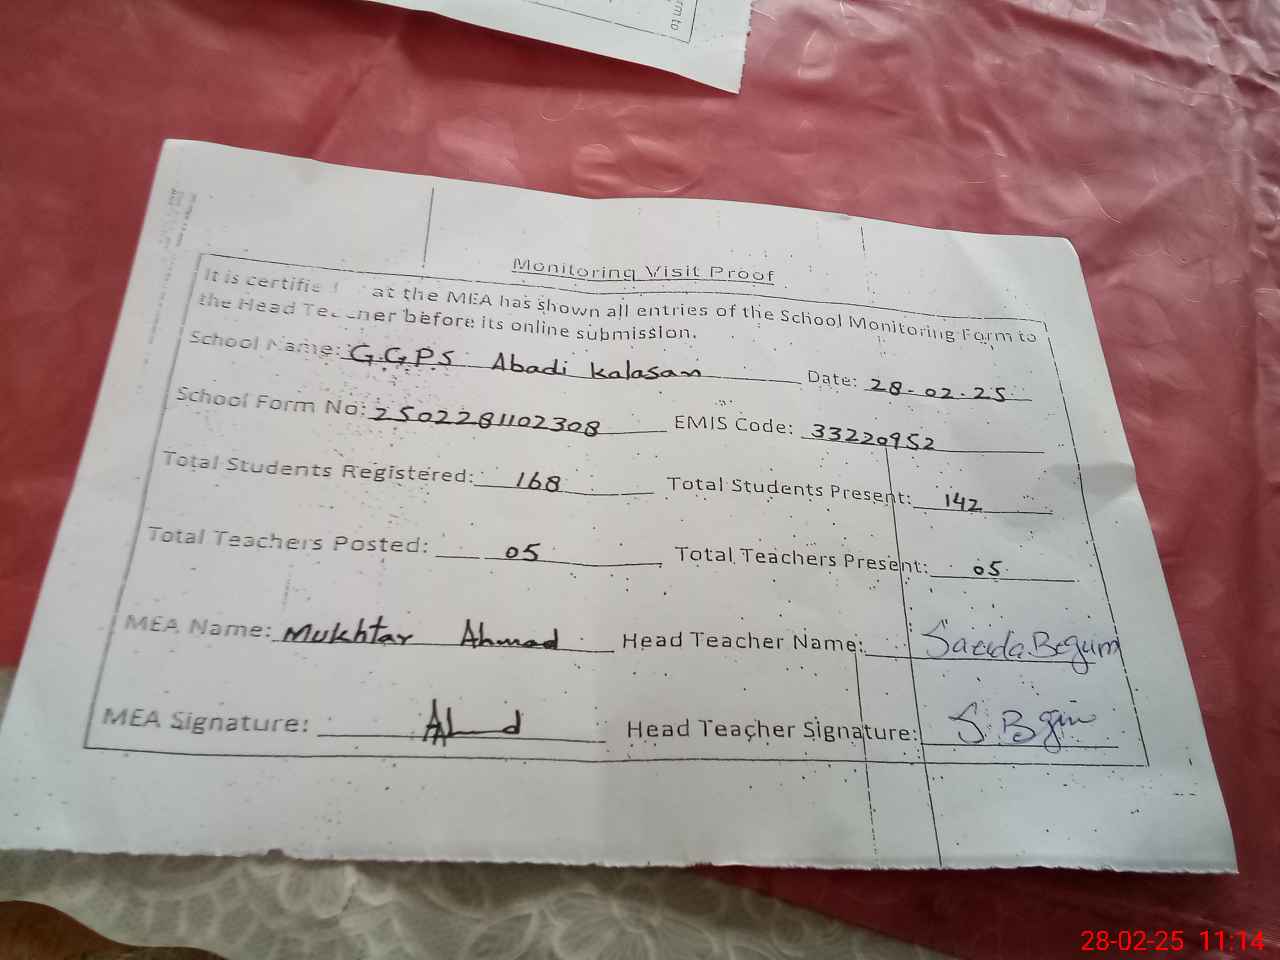 rm to
Monitoring Visit Proof
It is certified at the MEA has shown all entries of the School Monitoring Form to
the Head Teacher before its online submission.
School Name: G.G.P.S Abadi Kalasan Date: 28-02-25
School Form No: 2502281102308 EMIS Code: 33220952
Total Students Registered: 168 Total Students Present: 142
Total Teachers Posted: 05 Total Teachers Present: 05
MEA Name: Mukhtar Ahmad Head Teacher Name: Saeida Begum
MEA Signature: Head Teacher Signature:
28-02-25 11:14